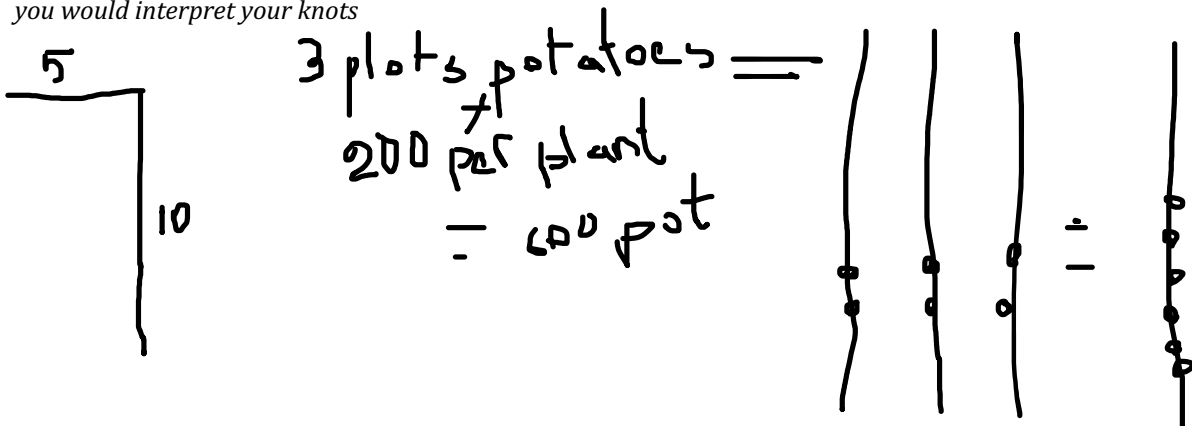 you would interpret your knots
5
3 plots potatoes =
+
200 per plant
= 600 pot
10
=